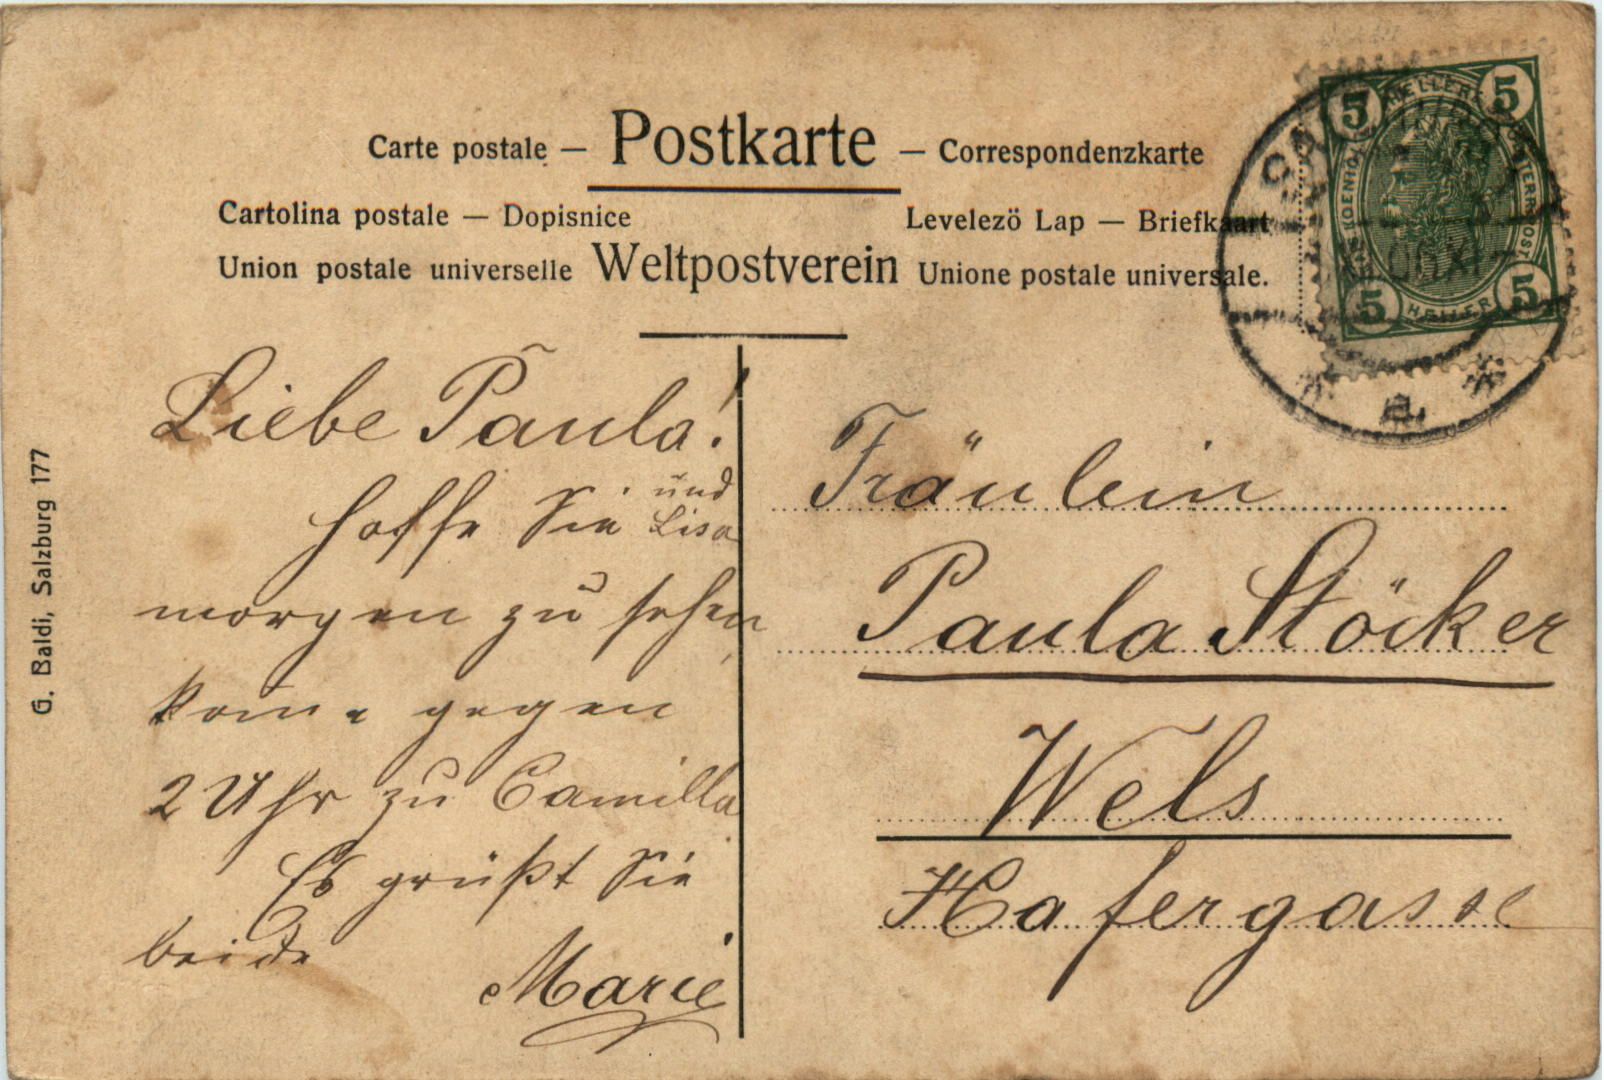 Carte postale — Postkarte — Correspondenzkarte
Cartolina postale — Dopisnice Levelezö Lap — Briefkaart
Union postale universelle Weltpostverein Unione postale universale.
5 5
5 5
HELLER
G. Baldi, Salzburg 177
Liebe Paula!
hoffe Sie und
Lisa
morgen zu sehen,
komme gegen
2 Uhr zu Camilla
Es grüßt Sie
beide
Marie
Fräulein
Paula Stöcker
Wels
Hafergasse